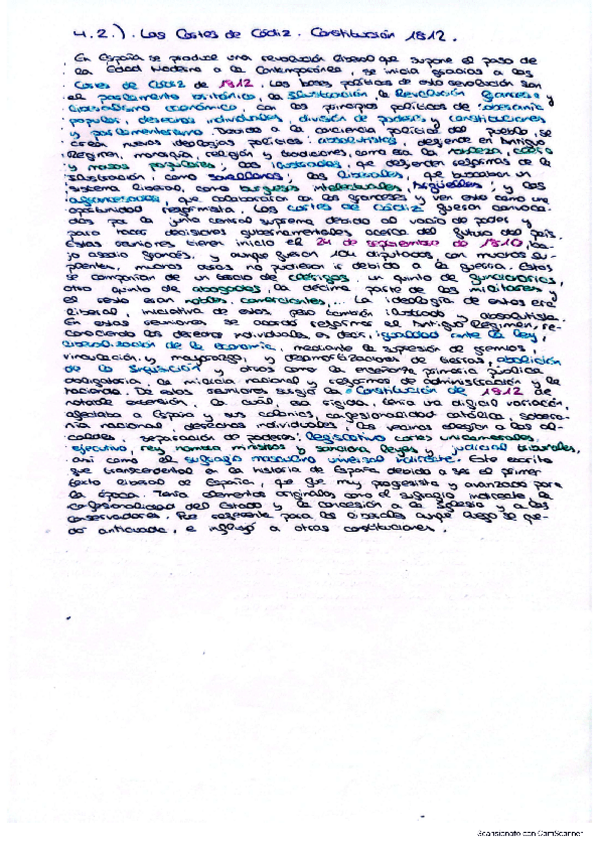 4.2.). Las Cortes de Cádiz. Constitución 1812.
En España se produce una revolución liberal que supone el paso de
la Edad Moderna a la Contemporánea, se inicia gracias a las
Cortes de Cádiz de 1812. Las bases políticas de esta revolución son
el parlamento británico, la Ilustración, la Revolución francesa y
liberalismo económico, con los principios políticos de soberanía
popular, derechos individuales, división de poderes y constituciones
y parlamentarismo. Debido a la conciencia política del pueblo, se
crean nuevas ideologías políticas: absolutistas defiende en Antiguo
Régimen, monarquía, religión y tradiciones, como era la nobleza, clero
y masas populares; los ilustrados, que defienden reformas de la
Ilustración como Jovellanos; los liberales, que buscaban un
sistema liberal, como burgueses intelectuales, Argüelles; y los
afrancesados, que colaboraron con los franceses y ven esto como una
oportunidad reformista. Las cortes de Cádiz fueron convoca-
das por la junta central suprema debido al vacío de poder y
para tomar decisiones gubernamentales acerca del futuro del país.
Estas reuniones tienen inicio el 24 de septiembre de 1810, ba-
jo asedio francés, y aunque fueron 104 diputados con muchos su-
plentes, muchos otros no pudieron ir debido a la guerra. Estos
se componían de un tercio de clérigos, un quinto de funcionarios,
otro quinto de abogados, la décima parte de los militares y
el resto eran nobles, comerciantes,... La ideología de estos era
liberal, iniciativa de estos, pero también ilustrado y absolutista.
En estas reuniones se acordó reformar el Antiguo Régimen, re-
conociendo los derechos individuales, es decir, igualdad ante la ley,
liberalización de la economía, mediante la supresión de gremios,
vinculación y mayorazgo, y desamortizaciones de tierras, abolición
de la Inquisición y otros como la enseñanza primaria pública
obligatoria, la milicia nacional y reformas de administración y la
hacienda. De estas reuniones surgió la Constitución de 1812 de
notable extensión, la cual, era rígida, tenía una difícil variación,
afectaba a España y sus colonias, confesionalidad católica, sobera-
nía nacional, derechos individuales, los vecinos elegían a los al-
caldes, separación de poderes: legislativo cortes unicamerales,
ejecutivo, rey nombra ministros y sanciona leyes y judicial tribunales,
así como el sufragio masculino universal indirecto. Este escrito
fue transcendental en la historia de España debido a ser el primer
texto liberal de España, que fue muy progresista y avanzado para
la época. Tenía elementos originales como el sufragio indirecto, la
confesionalidad del Estado y la concesión a la Iglesia y a los
conservadores. Fue referente para los liberales aunque luego se que-
dó anticuada, e influyó a otras constituciones.
Scansionato con CamScanner